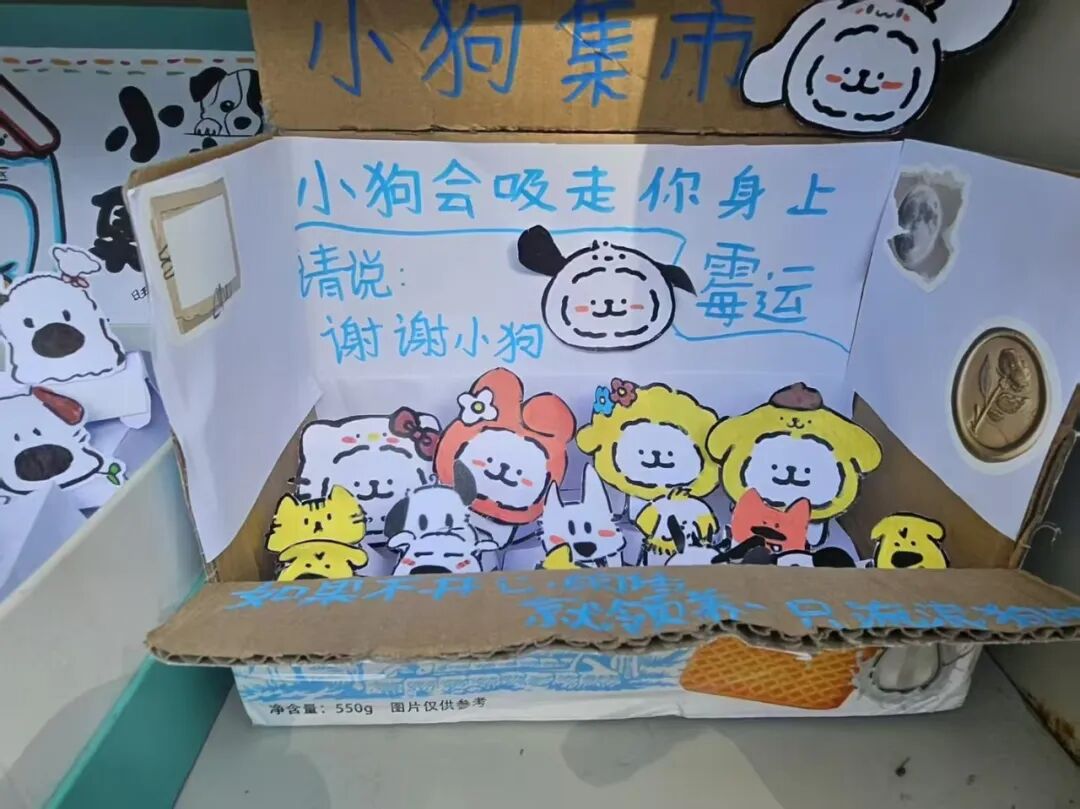 小狗集市
小
小狗会吸走你身上
霉运
请说:
谢谢小狗
如果不开心的话
就领养一只流浪狗
净含量: 550g 图片仅供参考